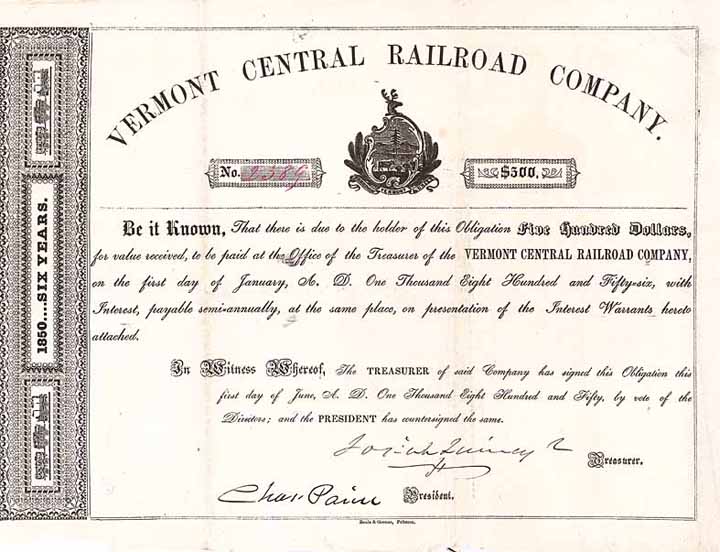 VERMONT CENTRAL RAILROAD COMPANY.
No. 2389
$500,
1850....SIX YEARS.
Be it Known, That there is due to the holder of this Obligation Five Hundred Dollars,
for value received, to be paid at the Office of the Treasurer of the VERMONT CENTRAL RAILROAD COMPANY,
on the first day of January, A. D. One Thousand Eight Hundred and Fifty-six, with
Interest, payable semi-annually, at the same place, on presentation of the Interest Warrants hereto
attached.
In Witness Whereof, The TREASURER of said Company has signed this Obligation this
first day of June, A. D. One Thousand Eight Hundred and Fifty, by vote of the
Directors; and the PRESIDENT has countersigned the same.
Josiah Quincy Jr
Treasurer.
Chas Paine
President.